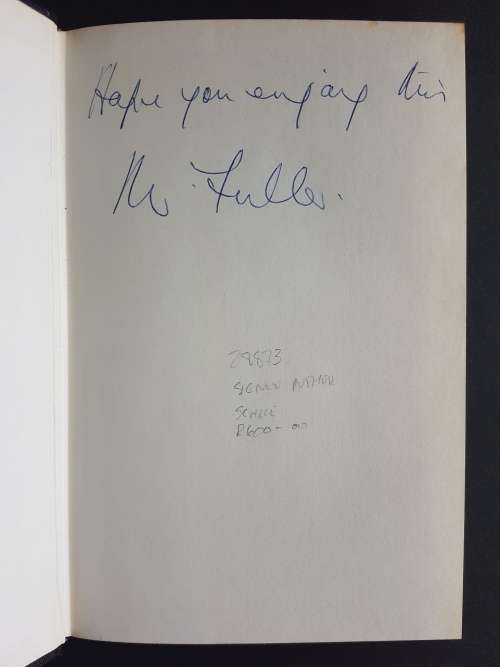 Hope you enjoy this
Mr. Fuller.
28873
SIGNED AUTHOR
SCARCE
R600-00